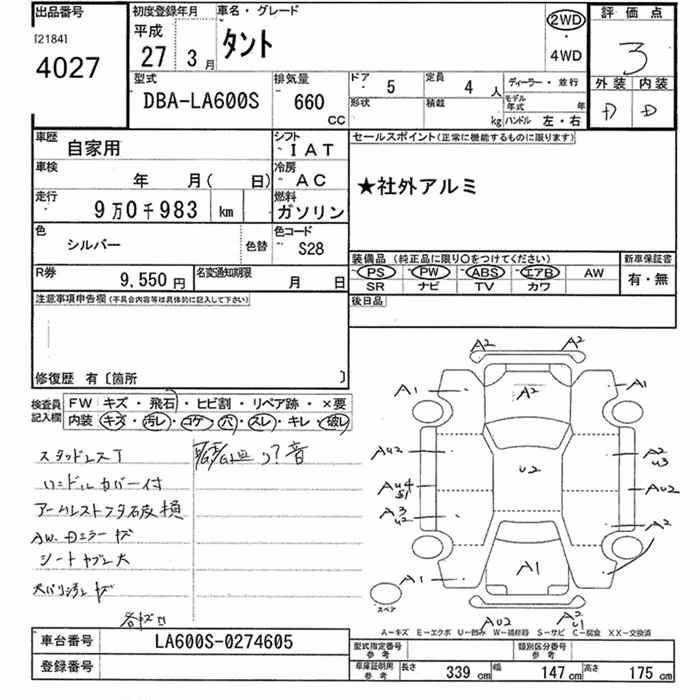 出品番号 初度登録年月 車名・グレード 評価点
[2184] 平成 タント 2WD
4027 27 3月 4WD 3
型式 排気量 ドア 5 定員 4人 ディーラー・並行 外装 内装
DBA-LA600S 660 cc 形状 積載 kg モデル年式 年 D D
ハンドル 左・右
車歴 自家用 シフト IAT セールスポイント(正常に機能するものに限ります)
車検 年 月( 日) 冷房 AC ★社外アルミ
走行 9万0千983 km 燃料 ガソリン
色 シルバー 色替 色コード S28
装備品(純正品に限り○をつけてください) 新車保証書
R券 9,550円 名変通知期限 月 日 PS PW ABS エアB AW 有・無
SR ナビ TV カワ
注意事項申告欄(不具合内容等は具体的に記入して下さい) 後日品
修復歴 有〔箇所 〕
検査員記入欄 FW キズ・飛石・ヒビ割・リペア跡・×要
内装 キズ・汚レ・コゲ・穴・スレ・キレ・破レ
A2 A2
A1 A2 A1
AU2 U2 A2 U3
AU4 S1 AU2
A3 U2 A2
A1 A1
スペア
AU2 A2 U1
スタッドレスT
ハンドルカバー付
アームレストフタ石皮損
AW.Dミラーキズ
各キズ凹
A－キズ E－エクボ U－凹み W－補修跡 S－サビ C－腐食 XX－交換済
車台番号 LA600S-0274605 型式指定番号 参考 類別区分番号 参考
登録番号 車庫証明用 参考 長さ 339 cm 幅 147 cm 高さ 175 cm